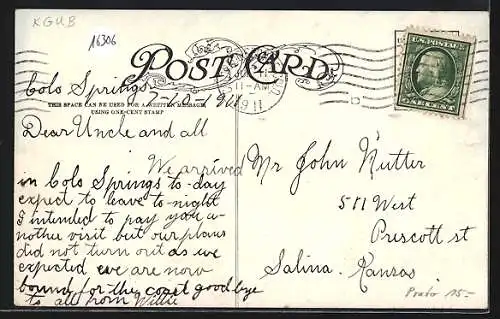 KGUB
16306
POST CARD
U.S. POSTAGE
ONE CENT
11-AM
1911
Colo Springs
THIS SPACE CAN BE USED FOR A WRITTEN MESSAGE,
USING ONE-CENT STAMP
Dear Uncle and all
We arrived
in Colo Springs to-day
expect to leave to-night
I intended to pay you a-
nother visit but our plans
did not turn out as we
expected we are now
bound for the coast good bye
to all from Willie
Mr John Nutter
511 West
Prescott st
Salina. Kansas
15-